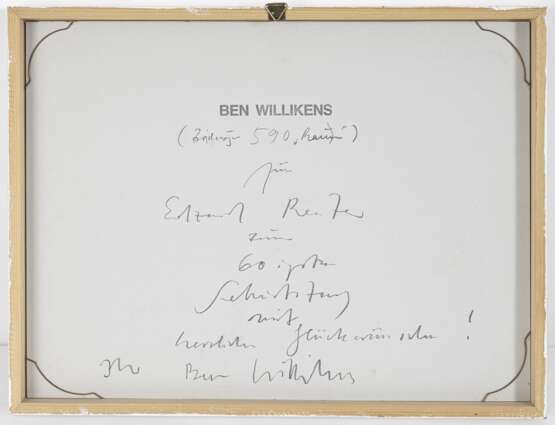 BEN WILLIKENS
(Zeichnung 590 „Räume“)
für
Edzard Reuter
zum
60igsten
Geburtstag
mit
herzlichen Glückwünschen !
Ihr Ben Willikens